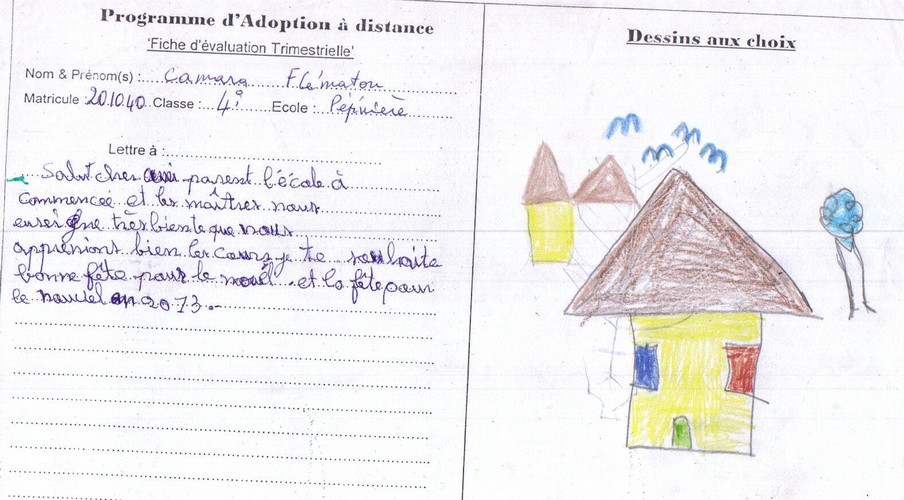 Programme d'Adoption à distance
'Fiche d'évaluation Trimestrielle'
Nom & Prénom(s) :.....Camara Flématou
Matricule 201040 Classe : 4è Ecole : Pépinière
Lettre à :
Salut cher parent l'école à
commencée et les maîtres nous
enseigne très bien te que nous
apprenions bien les cours je te souhaite
bonne fête pour le noël et la fête pour
le nouvel an 2013.
Dessins aux choix